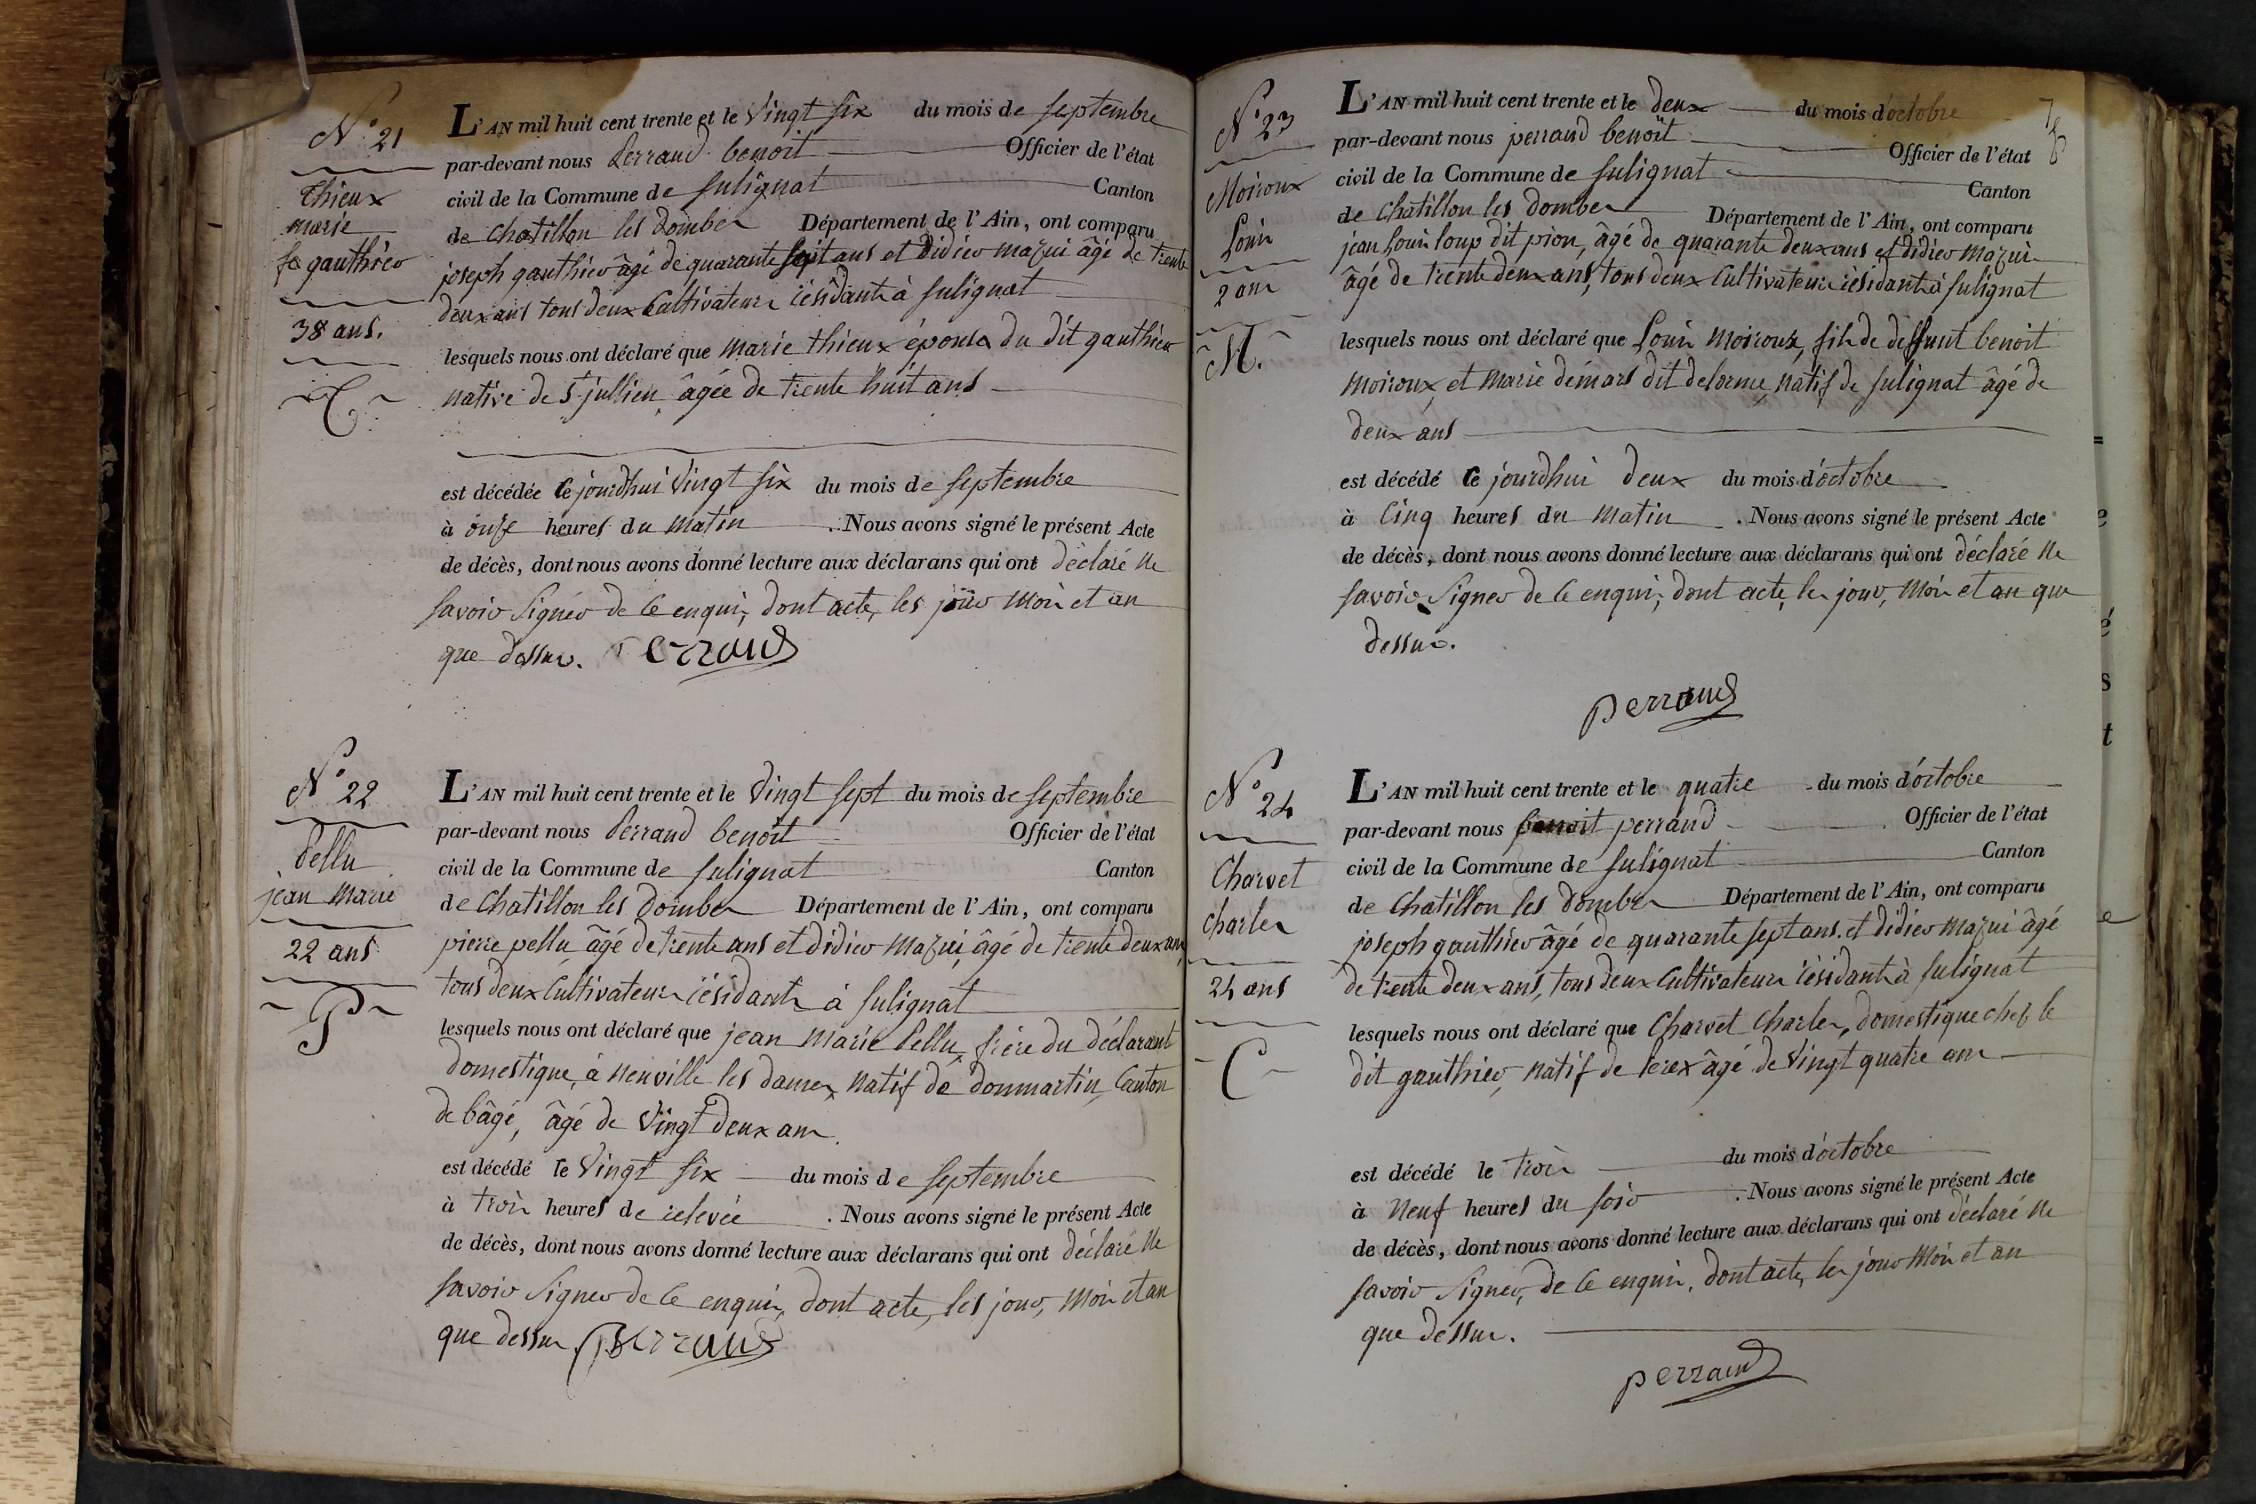 N° 21
Thieux
marie
fe gauthier
38 ans.
T
L'AN mil huit cent trente et le vingt six du mois de septembre
par-devant nous Perraud benoit Officier de l'état
civil de la Commune de Sulignat Canton
de chatillon les dombes Département de l'Ain, ont comparu
joseph gauthier âgé de quarante sept ans et Didier mazui âgé de trente
deux ans tous deux Cultivateurs résidants à Sulignat
lesquels nous ont déclaré que marie thieux épouse du dit gauthier
native de St jullien, âgée de trente huit ans
est décédée Ce jourdhui vingt six du mois de septembre
à onze heures du matin . Nous avons signé le présent Acte
de décès, dont nous avons donné lecture aux déclarans qui ont déclaré ne
savoir signer de ce enquis, dont acte, les jour mois et an
que dessus. Perraud
N° 22
Pellu
jean marie
22 ans
P
L'AN mil huit cent trente et le vingt sept du mois de septembre
par-devant nous Perraud benoit Officier de l'état
civil de la Commune de Sulignat Canton
de Chatillon les dombes Département de l'Ain, ont comparu
pierre pellu, âgé de trente ans et didier mazui, âgé de trente deux ans,
tous deux Cultivateurs résidants à Sulignat
lesquels nous ont déclaré que jean marie Pellu, frère du déclarant
domestique, à neuville les dames, natif de dommartin, Canton
de bâgé, âgé de vingt deux ans.
est décédé le vingt six du mois de septembre
à trois heures de relevée . Nous avons signé le présent Acte
de décès, dont nous avons donné lecture aux déclarans qui ont déclaré ne
savoir signer de ce enquis, dont acte, les jour, mois et an
que dessus Perraud
76
N° 23
Moiroux
Louis
2 ans
M.
L'AN mil huit cent trente et le deux du mois d'octobre
par-devant nous perraud benoit Officier de l'état
civil de la Commune de Sulignat Canton
de Chatillon les dombes Département de l'Ain, ont comparu
jean Louis loup dit pion, âgé de quarante deux ans et didier mazui
âgé de trente deux ans, tous deux Cultivateurs résidants à Sulignat
lesquels nous ont déclaré que Louis moiroux, fils de deffunt benoit
moiroux, et marie démars dit delorme, natif de Sulignat âgé de
deux ans
est décédé Ce jourdhui deux du mois d'octobre
à Cinq heures du matin . Nous avons signé le présent Acte
de décès, dont nous avons donné lecture aux déclarans qui ont déclaré ne
savoir signer de ce enquis, dont acte, les jour, mois et an que
dessus.
perraud
N° 24
Charvet
charles
24 ans
C
L'AN mil huit cent trente et le quatre du mois d'octobre
par-devant nous benoit perraud Officier de l'état
civil de la Commune de Sulignat Canton
de Chatillon les dombes Département de l'Ain, ont comparu
joseph gauthier âgé de quarante sept ans. et didier mazui âgé
de trente deux ans, tous deux Cultivateurs résidants à Sulignat
lesquels nous ont déclaré que Charvet Charles, domestique chez le
dit gauthier, natif de Perex âgé de vingt quatre ans
est décédé le trois du mois d'octobre
à neuf heures du soir . Nous avons signé le présent Acte
de décès, dont nous avons donné lecture aux déclarans qui ont déclaré ne
savoir signer, de ce enquis. dont acte, les jour mois et an
que dessus.
perraud